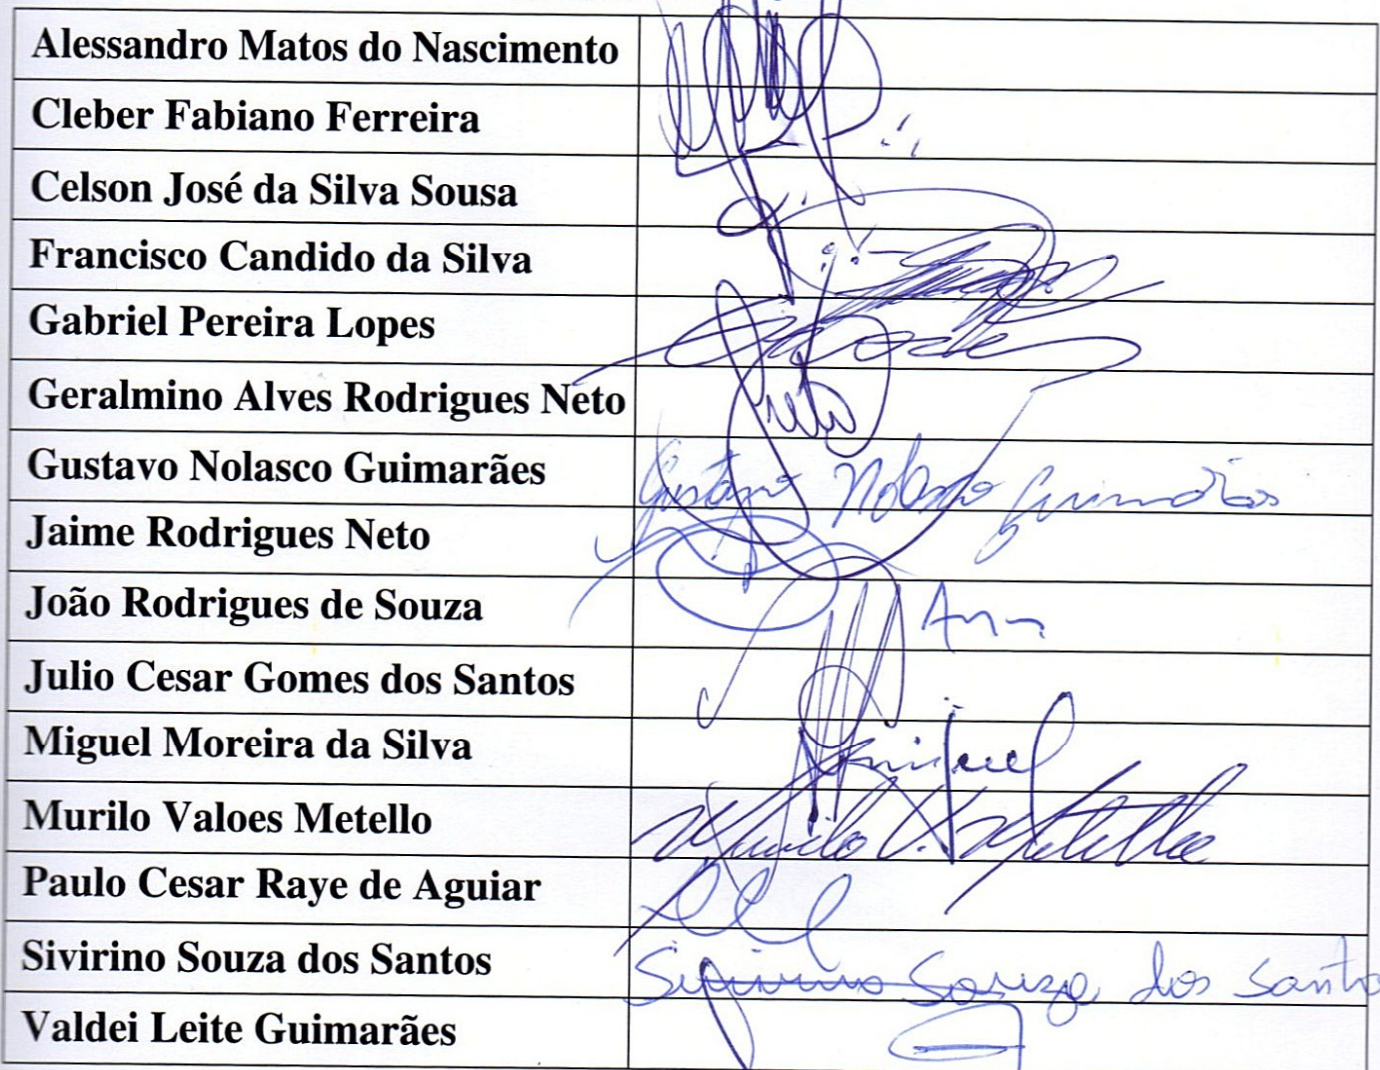 Alessandro Matos do Nascimento
Cleber Fabiano Ferreira
Celson José da Silva Sousa
Francisco Candido da Silva
Gabriel Pereira Lopes
Geralmino Alves Rodrigues Neto
Gustavo Nolasco Guimarães Gustavo Nolasco Guimarães
Jaime Rodrigues Neto
João Rodrigues de Souza
Julio Cesar Gomes dos Santos
Miguel Moreira da Silva
Murilo Valoes Metello Murilo V. Metello
Paulo Cesar Raye de Aguiar
Sivirino Souza dos Santos Sivirino Souza dos Santo
Valdei Leite Guimarães